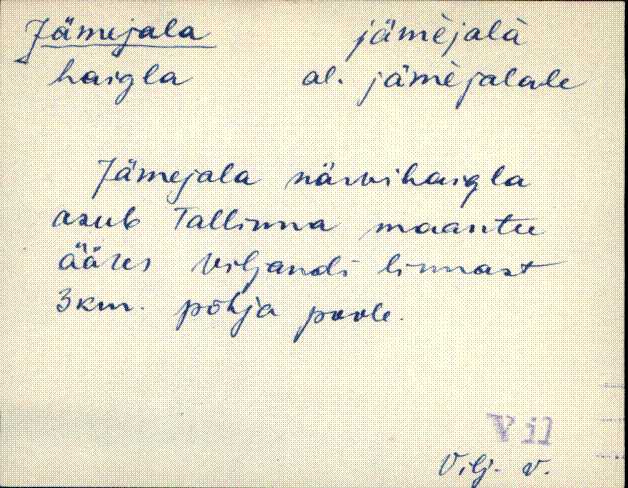 Jämejala jämèjalà
haigla al. jämèjalale
Jämejala närvihaigla
asub Tallinna maantee
ääres Viljandi linnast
3 km. põhja poole.
Vil
Vilj. v.